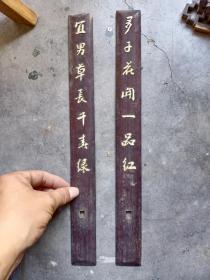 多子花開一品紅
宜男草長千春綠